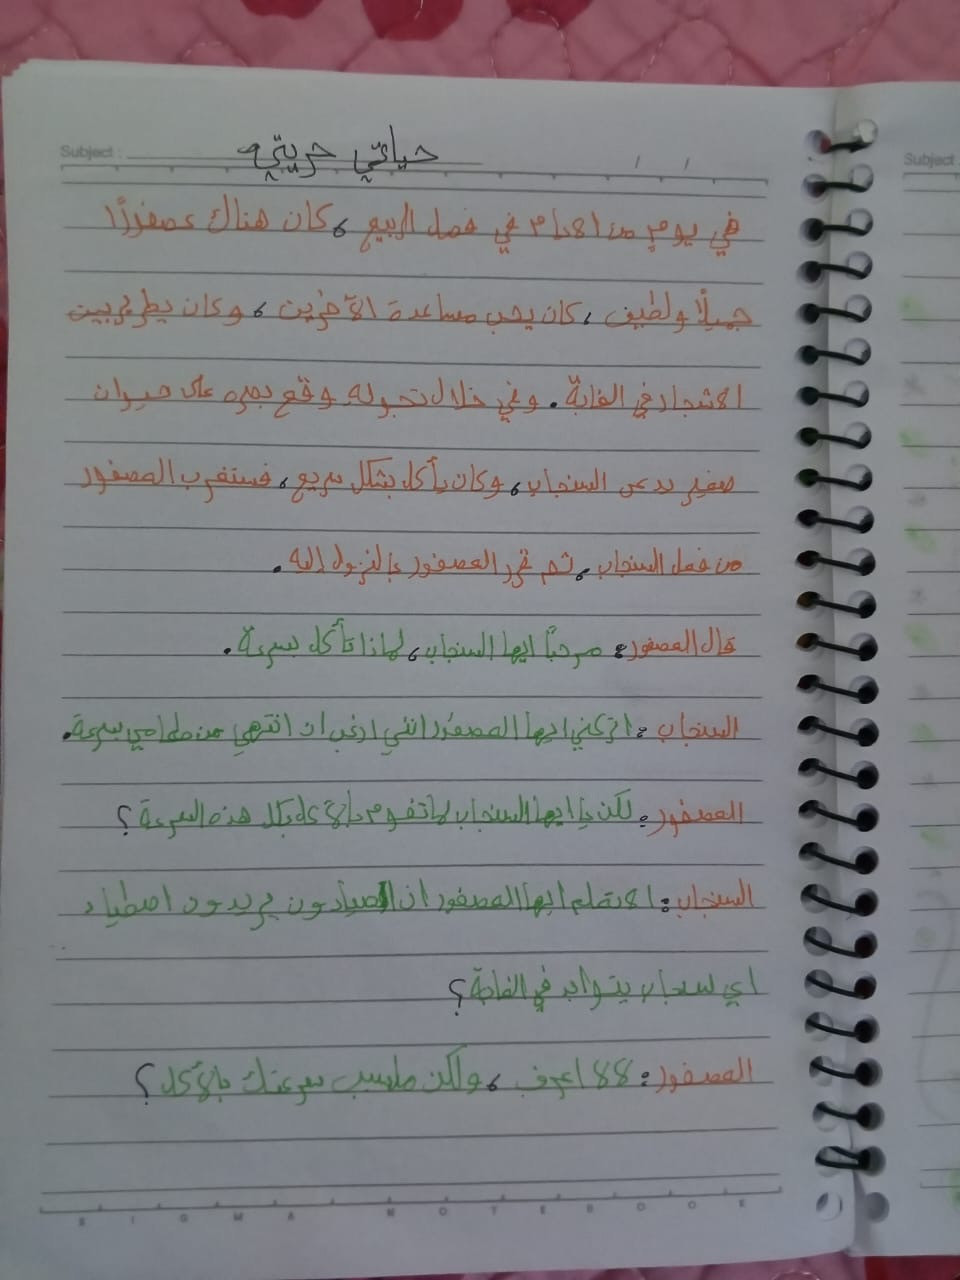 Subject :
حياتي حريتي
Subject :
في يومٍ من الايام في فصل الربيع، كان هناك عصفورًا
جميلًا ولطيف، كان يحب مساعدة الآخرين، وكان يطير بين
الاشجار في الغابة. وفي خلال تجوله وقع بصره على حيوان
صغير يدعى السنجاب، وكان يأكل بشكل سريع، فستغرب العصفور
من فعل السنجاب، ثم قرر العصفور بالنزول إليه.
قال العصفور: مرحبًا ايها السنجاب، لماذا تأكل بسرعة.
السنجاب: اتركني ايها العصفور انني ارغب ان انتهي من طعامي بسرعة.
العصفور: لكن يا ايها السنجاب لما تقوم بالأكل بكل هذه السرعة؟
السنجاب: الا تعلم ايها العصفور ان الصيادون يريدون اصطياد
اي سنجاب يتواجد في الغابة؟
العصفور: لالا اعرف، ولكن ماسبب سرعتك بالأكل؟
S I G M A N O T E B O O K